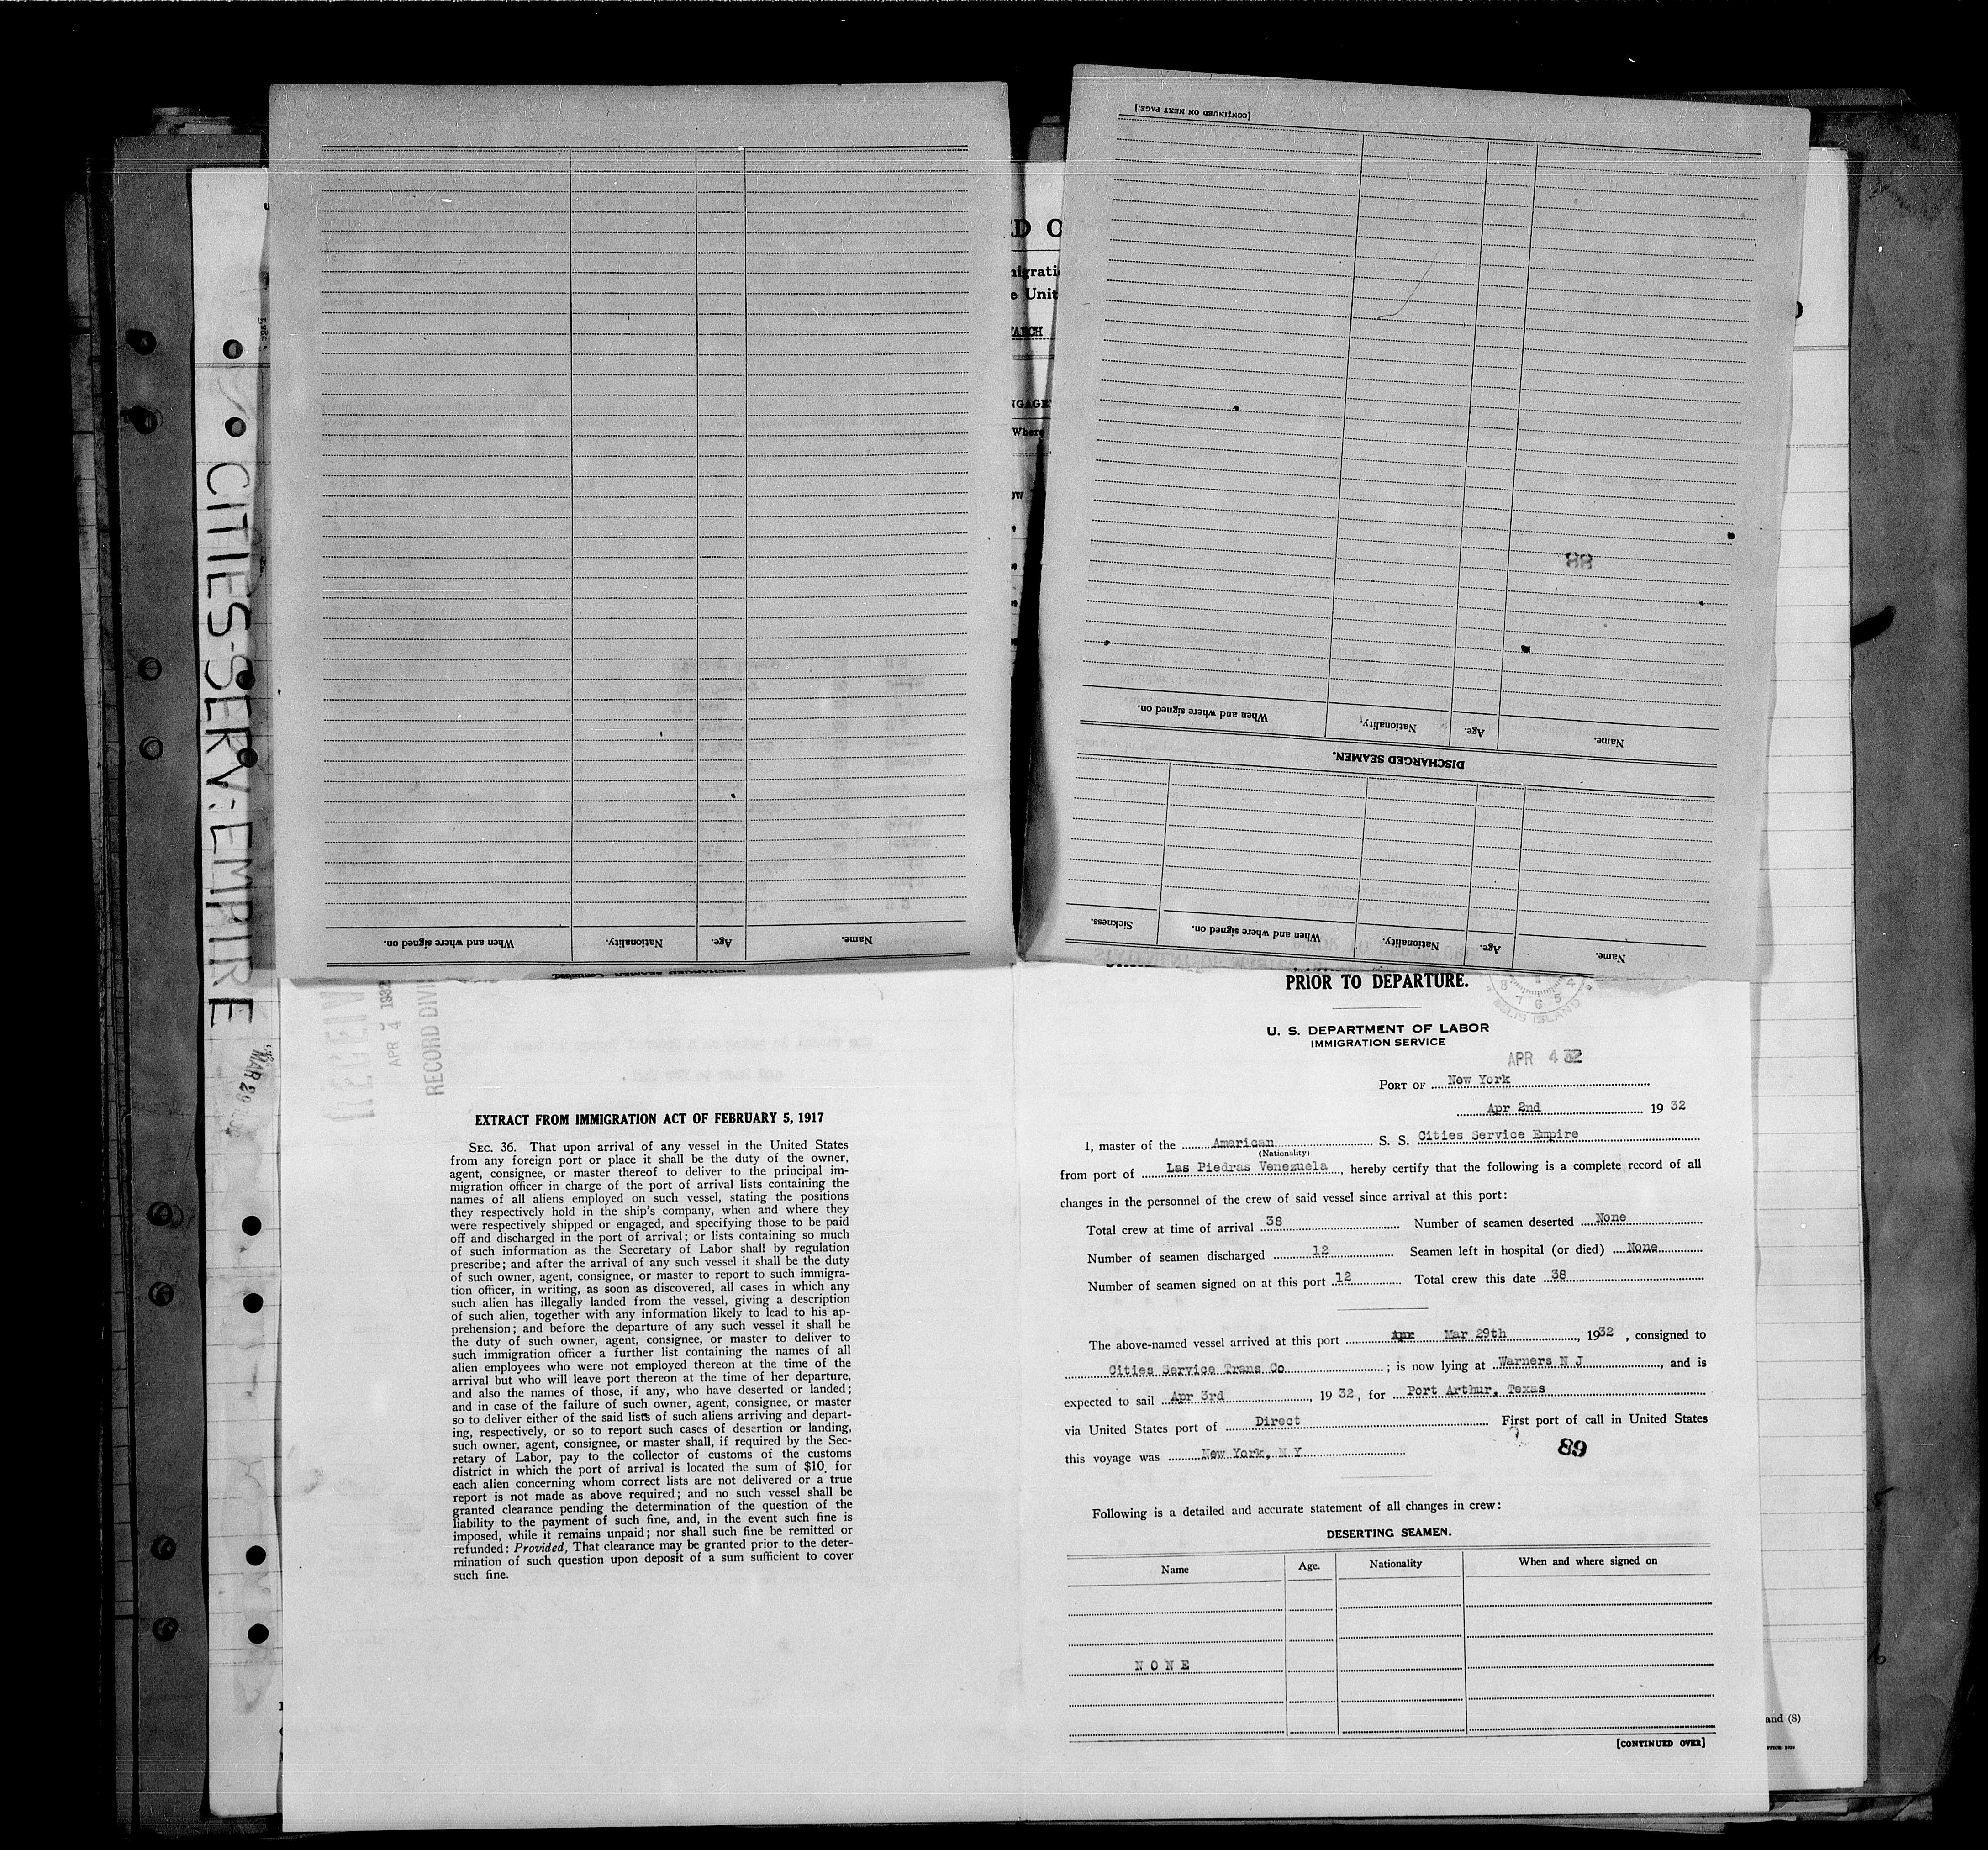 CITIES-SERV. EMPIRE
MAR 29
[CONTINUED ON NEXT PAGE.]
When and where signed on.
Nationality.
Age.
Name.
DISCHARGED SEAMEN.
Sickness.
When and where signed on.
Nationality.
Age.
Name.
88
When and where signed on.
Nationality.
Age.
Name.
DISCHARGED SEAMEN—Continued
APR 4 1932
EXTRACT FROM IMMIGRATION ACT OF FEBRUARY 5, 1917
SEC. 36. That upon arrival of any vessel in the United States
from any foreign port or place it shall be the duty of the owner,
agent, consignee, or master thereof to deliver to the principal im-
migration officer in charge of the port of arrival lists containing the
names of all aliens employed on such vessel, stating the positions
they respectively hold in the ship's company, when and where they
were respectively shipped or engaged, and specifying those to be paid
off and discharged in the port of arrival; or lists containing so much
of such information as the Secretary of Labor shall by regulation
prescribe; and after the arrival of any such vessel it shall be the duty
of such owner, agent, consignee, or master to report to such immigra-
tion officer, in writing, as soon as discovered, all cases in which any
such alien has illegally landed from the vessel, giving a description
of such alien, together with any information likely to lead to his ap-
prehension; and before the departure of any such vessel it shall be
the duty of such owner, agent, consignee, or master to deliver to
such immigration officer a further list containing the names of all
alien employees who were not employed thereon at the time of the
arrival but who will leave port thereon at the time of her departure,
and also the names of those, if any, who have deserted or landed;
and in case of the failure of such owner, agent, consignee, or master
so to deliver either of the said lists of such aliens arriving and depart-
ing, respectively, or so to report such cases of desertion or landing,
such owner, agent, consignee, or master shall, if required by the Sec-
retary of Labor, pay to the collector of customs of the customs
district in which the port of arrival is located the sum of $10 for
each alien concerning whom correct lists are not delivered or a true
report is not made as above required; and no such vessel shall be
granted clearance pending the determination of the question of the
liability to the payment of such fine, and, in the event such fine is
imposed, while it remains unpaid; nor shall such fine be remitted or
refunded: Provided, That clearance may be granted prior to the deter-
mination of such question upon deposit of a sum sufficient to cover
such fine.
PRIOR TO DEPARTURE.
U. S. DEPARTMENT OF LABOR
IMMIGRATION SERVICE
ELLIS ISLAND
APR 4 32
PORT OF New York
Apr 2nd 19 32
I, master of the American S. S. Cities Service Empire
(Nationality)
from port of Las Piedras Venezuela, hereby certify that the following is a complete record of all
changes in the personnel of the crew of said vessel since arrival at this port:
Total crew at time of arrival 38 Number of seamen deserted None
Number of seamen discharged 12 Seamen left in hospital (or died) None
Number of seamen signed on at this port 12 Total crew this date 38
The above-named vessel arrived at this port Mar 29th, 1932, consigned to
Cities Service Trans Co; is now lying at Warners N J, and is
expected to sail Apr 3rd, 19 32, for Port Arthur, Texas
via United States port of Direct First port of call in United States
this voyage was New York, N Y
89
Following is a detailed and accurate statement of all changes in crew:
DESERTING SEAMEN.
Name Age. Nationality When and where signed on
N O N E
[CONTINUED OVER]
and (8)